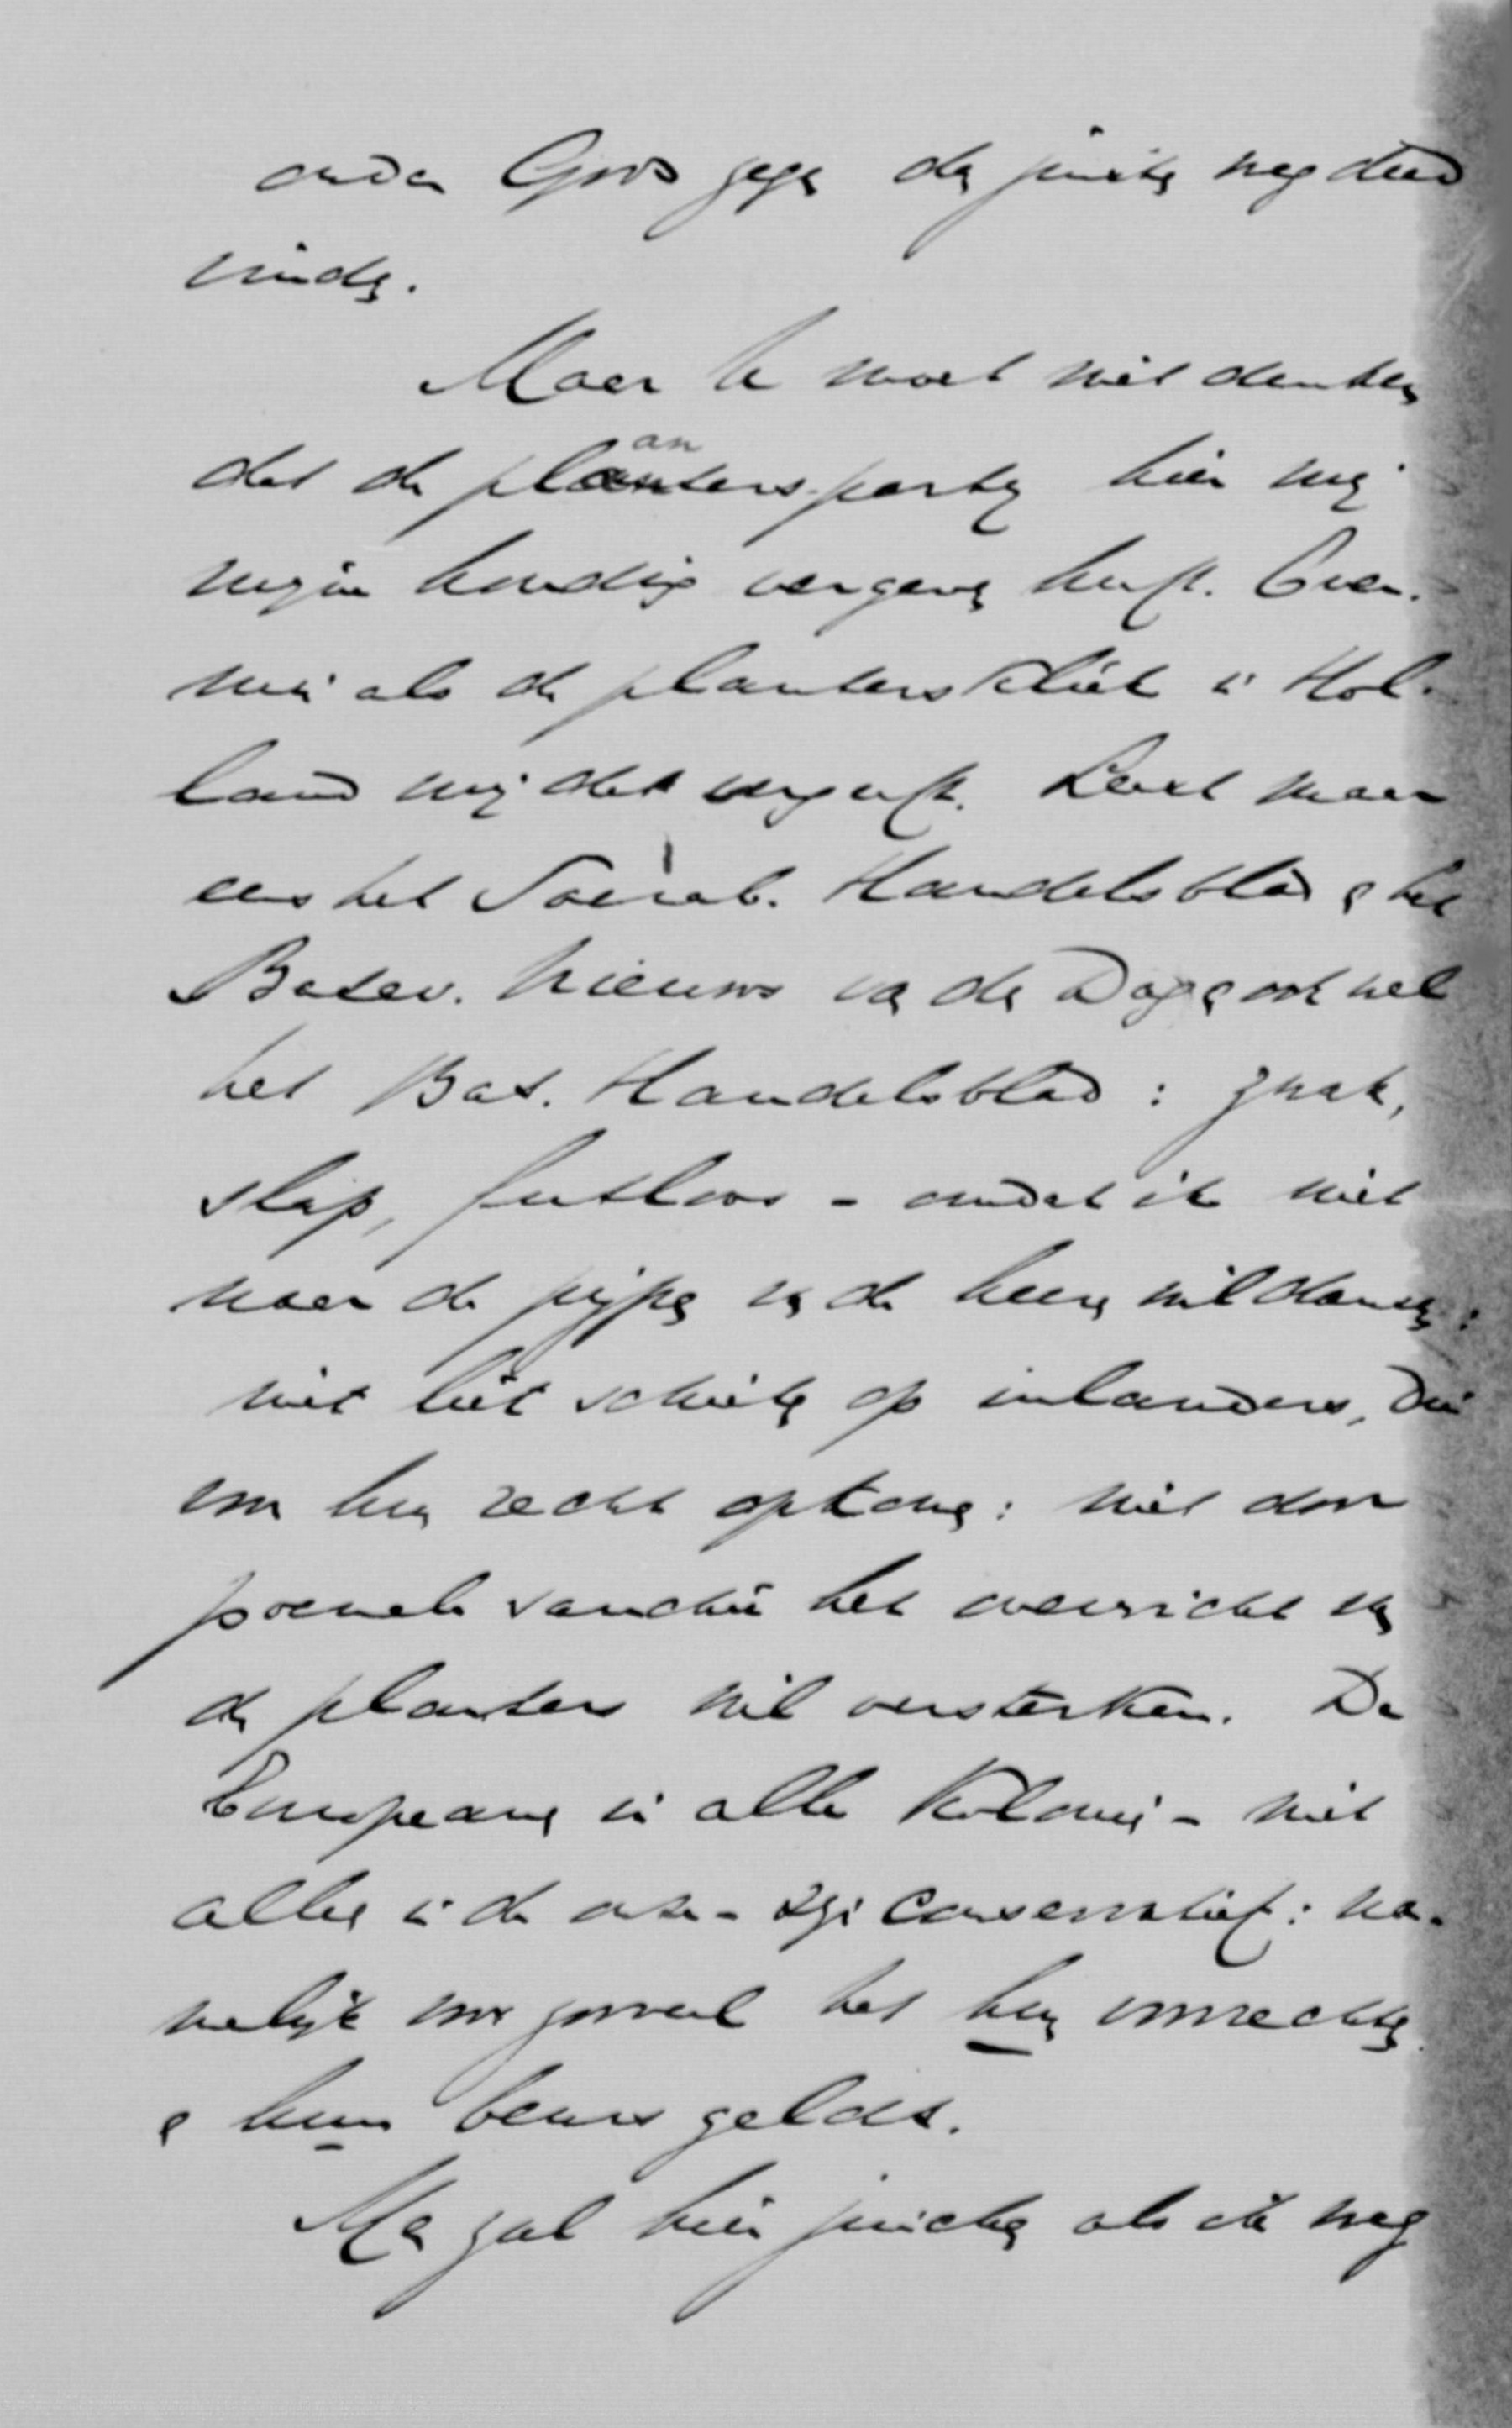 onder Gods zegen den juisten weg deed
vinden.
Maar U moet niet denken
dat de planters-partij hier mij
mijn houding vergeven heeft. Even-
min als de plantersklick in Hol-
land mij dat vergeeft. Leest maar
eens het Soerab. Handelsblad en het
Batav. Nieuws van den Dag en ook wel
het Bat. Handelsblad: zwak,
slap, futloos - omdat ik niet
naar de pijpen van de heeren wil dansen:
niet liet schieten op inlanders, die
voor hun recht opkomen: niet door
poenale sanctie het overwicht van
de planters wil versterken. De
Europeanen in alle Koloniën - niet
alleen in de onze - zijn conservatief: na-
melijk voor zooveel het hun voorrechten
en hun beurs geldt.
Men zal hier juichen als ik weg